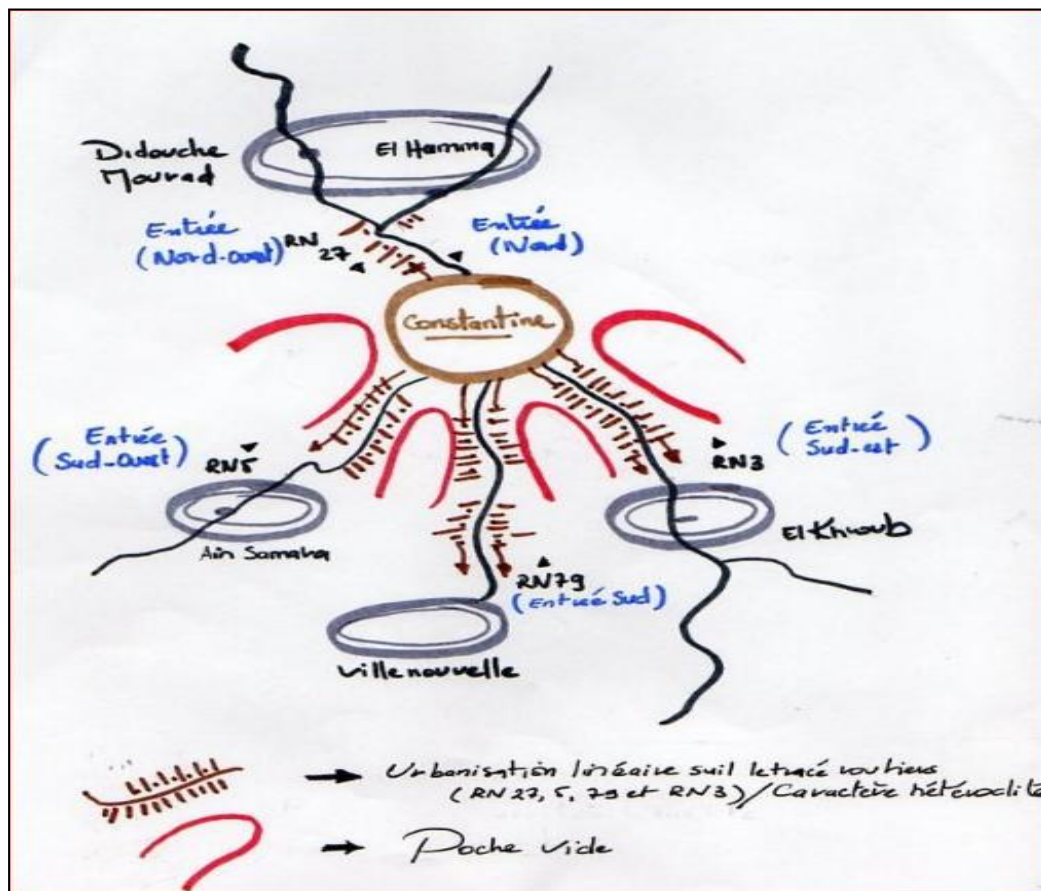 Didouche
Mourad
El Hamma
Entrée
(Nord-Ouest)
RN
27
Entrée
(Nord)
Constantine
Entrée
(Sud-Ouest)
RN5
Ain Samara
Entrée
(Sud-est)
RN3
El Khroub
RN79
(Entrée Sud)
Ville nouvelle
Urbanisation linéaire suit le tracé routiers
(RN27, 5, 79 et RN3)/Caractère hétéroclite
Poche vide